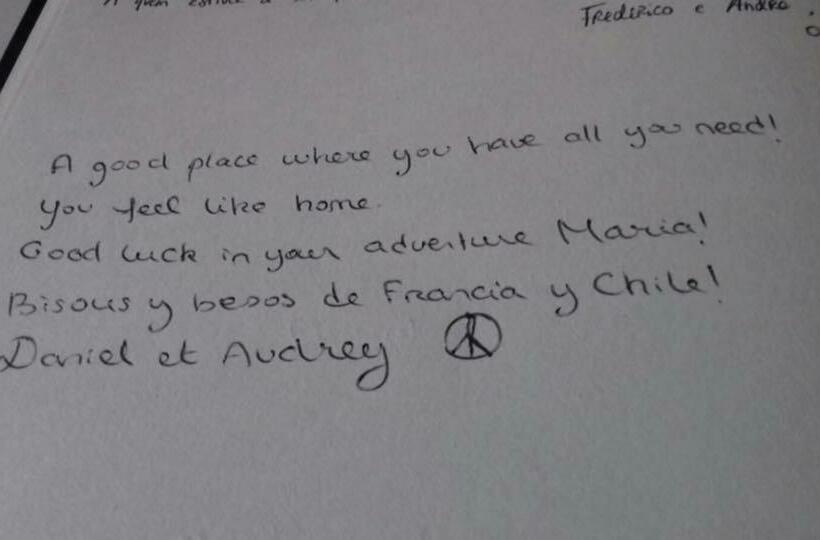 Frederico e Andre
A good place where you have all you need!
You feel like home.
Good luck in your adventure Maria!
Bisous y besos de Francia y Chile!
Daniel et Audrey